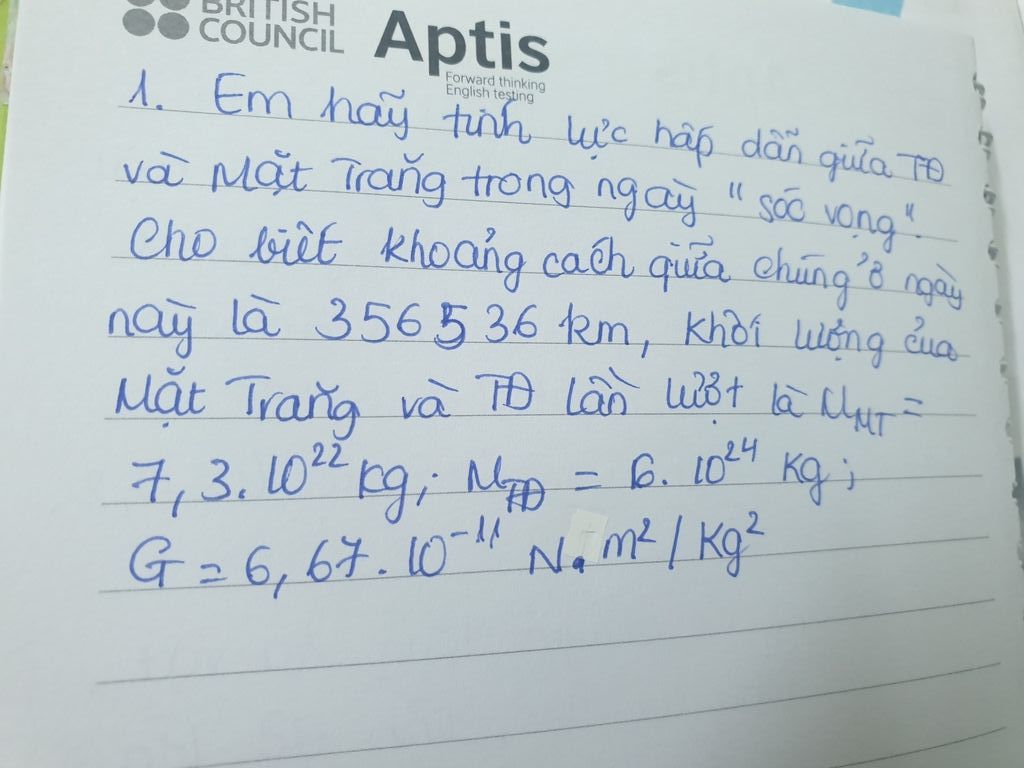 BRITISH
COUNCIL
Aptis
Forward thinking
English testing
1. Em hãy tính lực hấp dẫn giữa TĐ
và Mặt Trăng trong ngày "sóc vọng".
Cho biết khoảng cách giữa chúng ở ngày
này là 356536 km, khối lượng của
Mặt Trăng và TĐ lần lượt là M_MT =
7,3.10²² kg; M_TĐ = 6.10²⁴ kg;
G = 6,67.10⁻¹¹ N.m²/Kg²